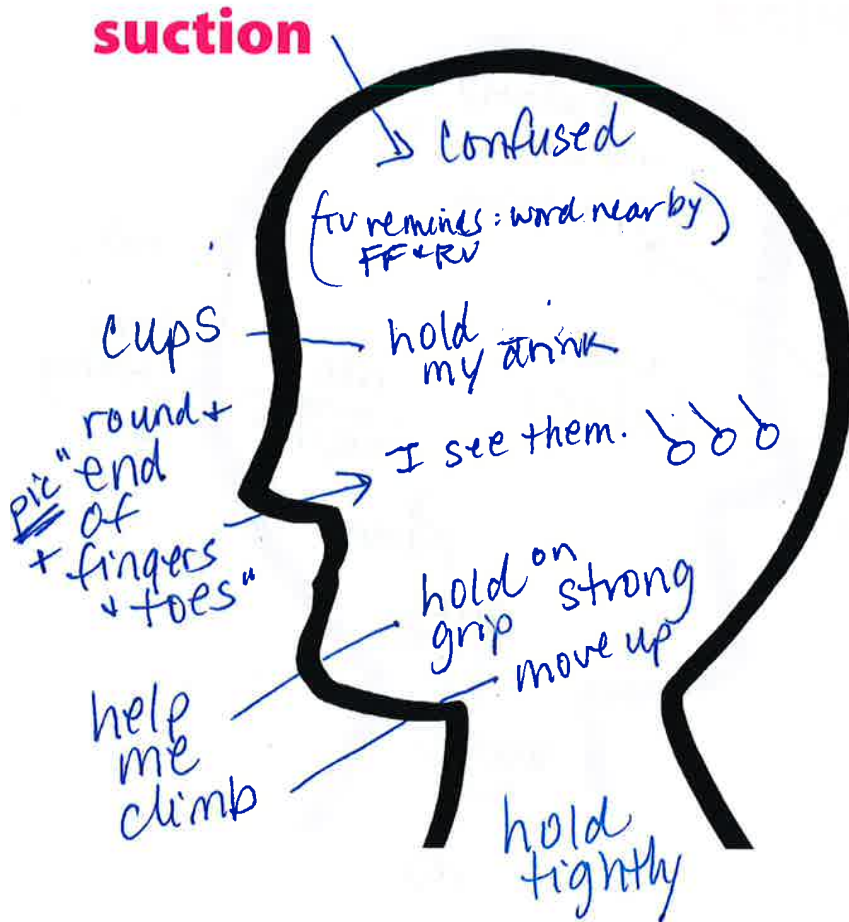 suction
confused
(TV reminds: word nearby)
FF + RV
cups
hold
my drink
round +
pic "end
of
+ fingers
+ toes"
I see them.
hold on
grip strong
move up
help
me
climb
hold
tightly